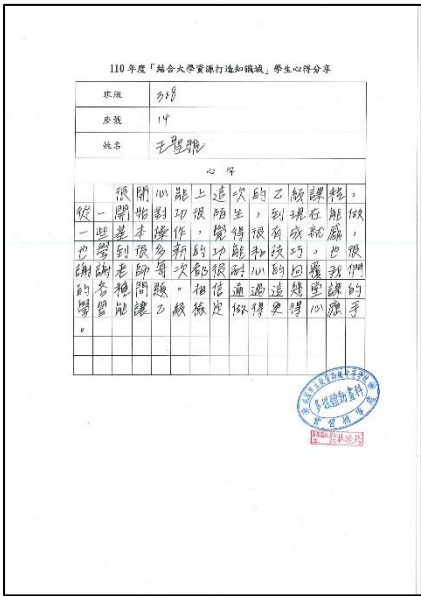 110 年度「結合大學資源打造知識城」學生心得分享
班級
座號 14
姓名 王聖雅
心得
很開心能上這次的乙級課程，
從一開始對功很陌生，到現在能做
一些基本操作，覺得很有成就感，
也學到很多新的功能和技巧，也很
謝謝老師每次都很耐心的回覆我們
的各種問題。相信通過這幾堂課的
學習能讓乙級檢定做得更得心應手
。
多媒體動畫科